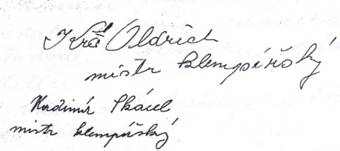 Král Oldřich
mistr klempířský
Vladimír Skácel
mistr klempířský